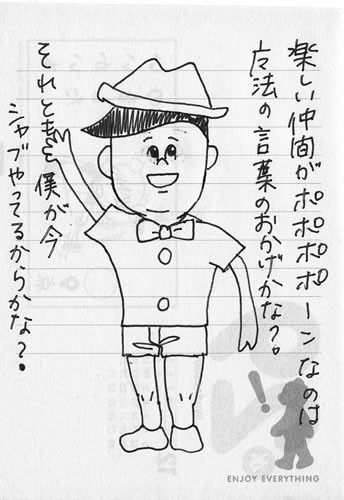 楽しい仲間がポポポポーンなのは
广法の言葉のおかげかな?。
それとも僕が今
シャブやってるからかな?。
!
ENJOY EVERYTHING